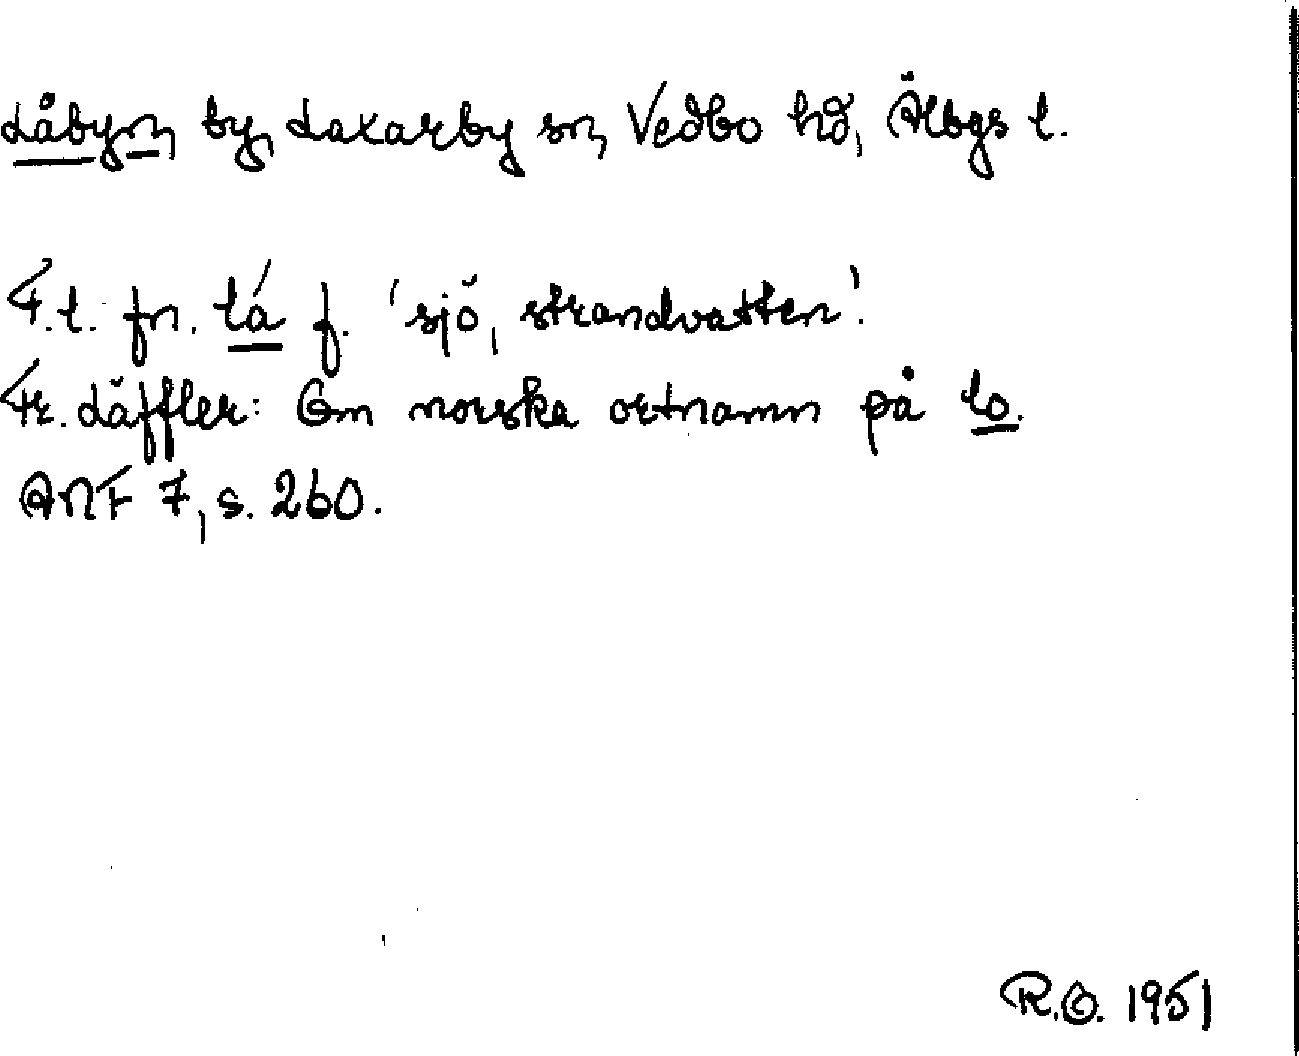 Låbyn by, Laxarby sn, Vedbo hd, Älbgs l.
F.l. fn. lá f. 'sjö, strandvatten'.
Fr. Läffler: Om norska ortnamn på lo.
ANF 7, s. 260.
R.O. 1951